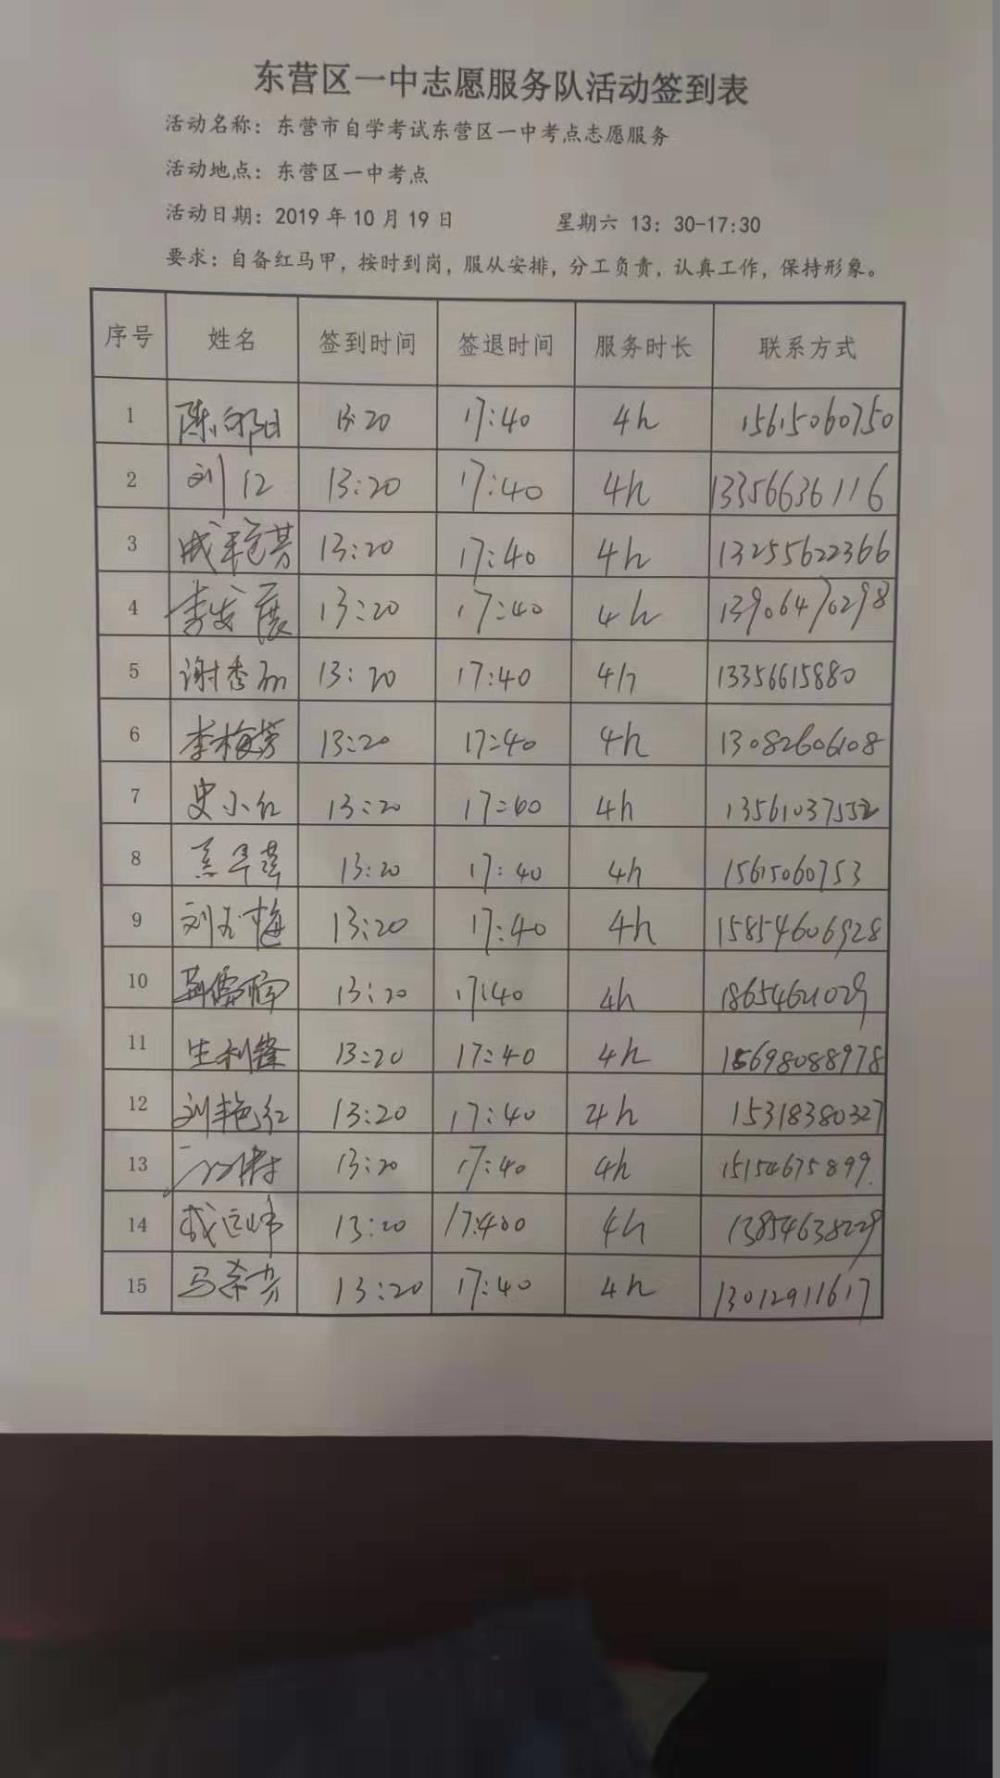 东营区一中志愿服务队活动签到表
活动名称：东营市自学考试东营区一中考点志愿服务
活动地点：东营区一中考点
活动日期：2019年10月19日 星期六 13：30-17:30
要求：自备红马甲，按时到岗，服从安排，分工负责，认真工作，保持形象。
序号 姓名 签到时间 签退时间 服务时长 联系方式
1 陈邵阳 13:20 17:40 4h 15615060750
2 刘江 13:20 17:40 4h 13356636116
3 成艳芳 13:20 17:40 4h 13255622366
4 李发展 13:20 17:40 4h 13906470298
5 谢秀丽 13:20 17:40 4h 13356615880
6 李梅芳 13:20 17:40 4h 13082606108
7 史小红 13:20 17:60 4h 13561037552
8 13:20 17:40 4h 15615060753
9 刘玉梅 13:20 17:40 4h 15854606928
10 13:20 17:40 4h 18654621029
11 生利锋 13:20 17:40 4h 15698088978
12 刘艳红 13:20 17:40 4h 15318380327
13 13:20 17:40 4h 15154675899.
14 成远峰 13:20 17:400 4h 13854638229
15 马奈芳 13:20 17:40 4h 13012911617